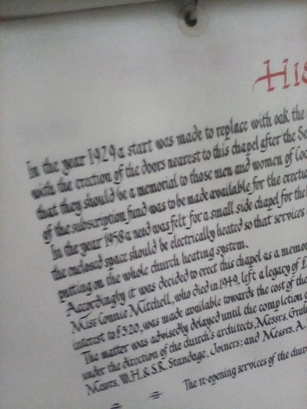 His
In the year 1929 a start was made to replace with oak the
with the erection of the doors nearest to this chapel after the Se
that they should be a memorial to those men and women of lo
of the subscription fund was to be made available for the erectio
In the year 1958 a need was felt for a small side chapel for the
the enclosed space should be electrically heated so that service
putting on the whole church heating system.
Accordingly it was decided to erect this chapel as a memo
Miss Connie Mitchell, who died in 1949, left a legacy of £
interest to £520, was made available towards the cost of the
The matter was advisedly delayed until the completion
under the direction of the church's architects, Messrs. Grah
Messrs. W.H. & S.R. Standage, Joiners; and Messrs. A.
The re-opening services of the chur